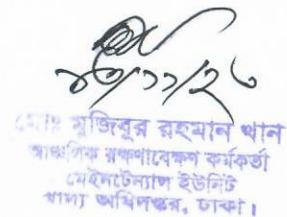 ১৩/১১/২৩
মোঃ মুজিবুর রহমান খান
আঞ্চলিক রক্ষণাবেক্ষণ কর্মকর্তা
মেইনটেন্যান্স ইউনিট
খাদ্য অধিদপ্তর, ঢাকা।